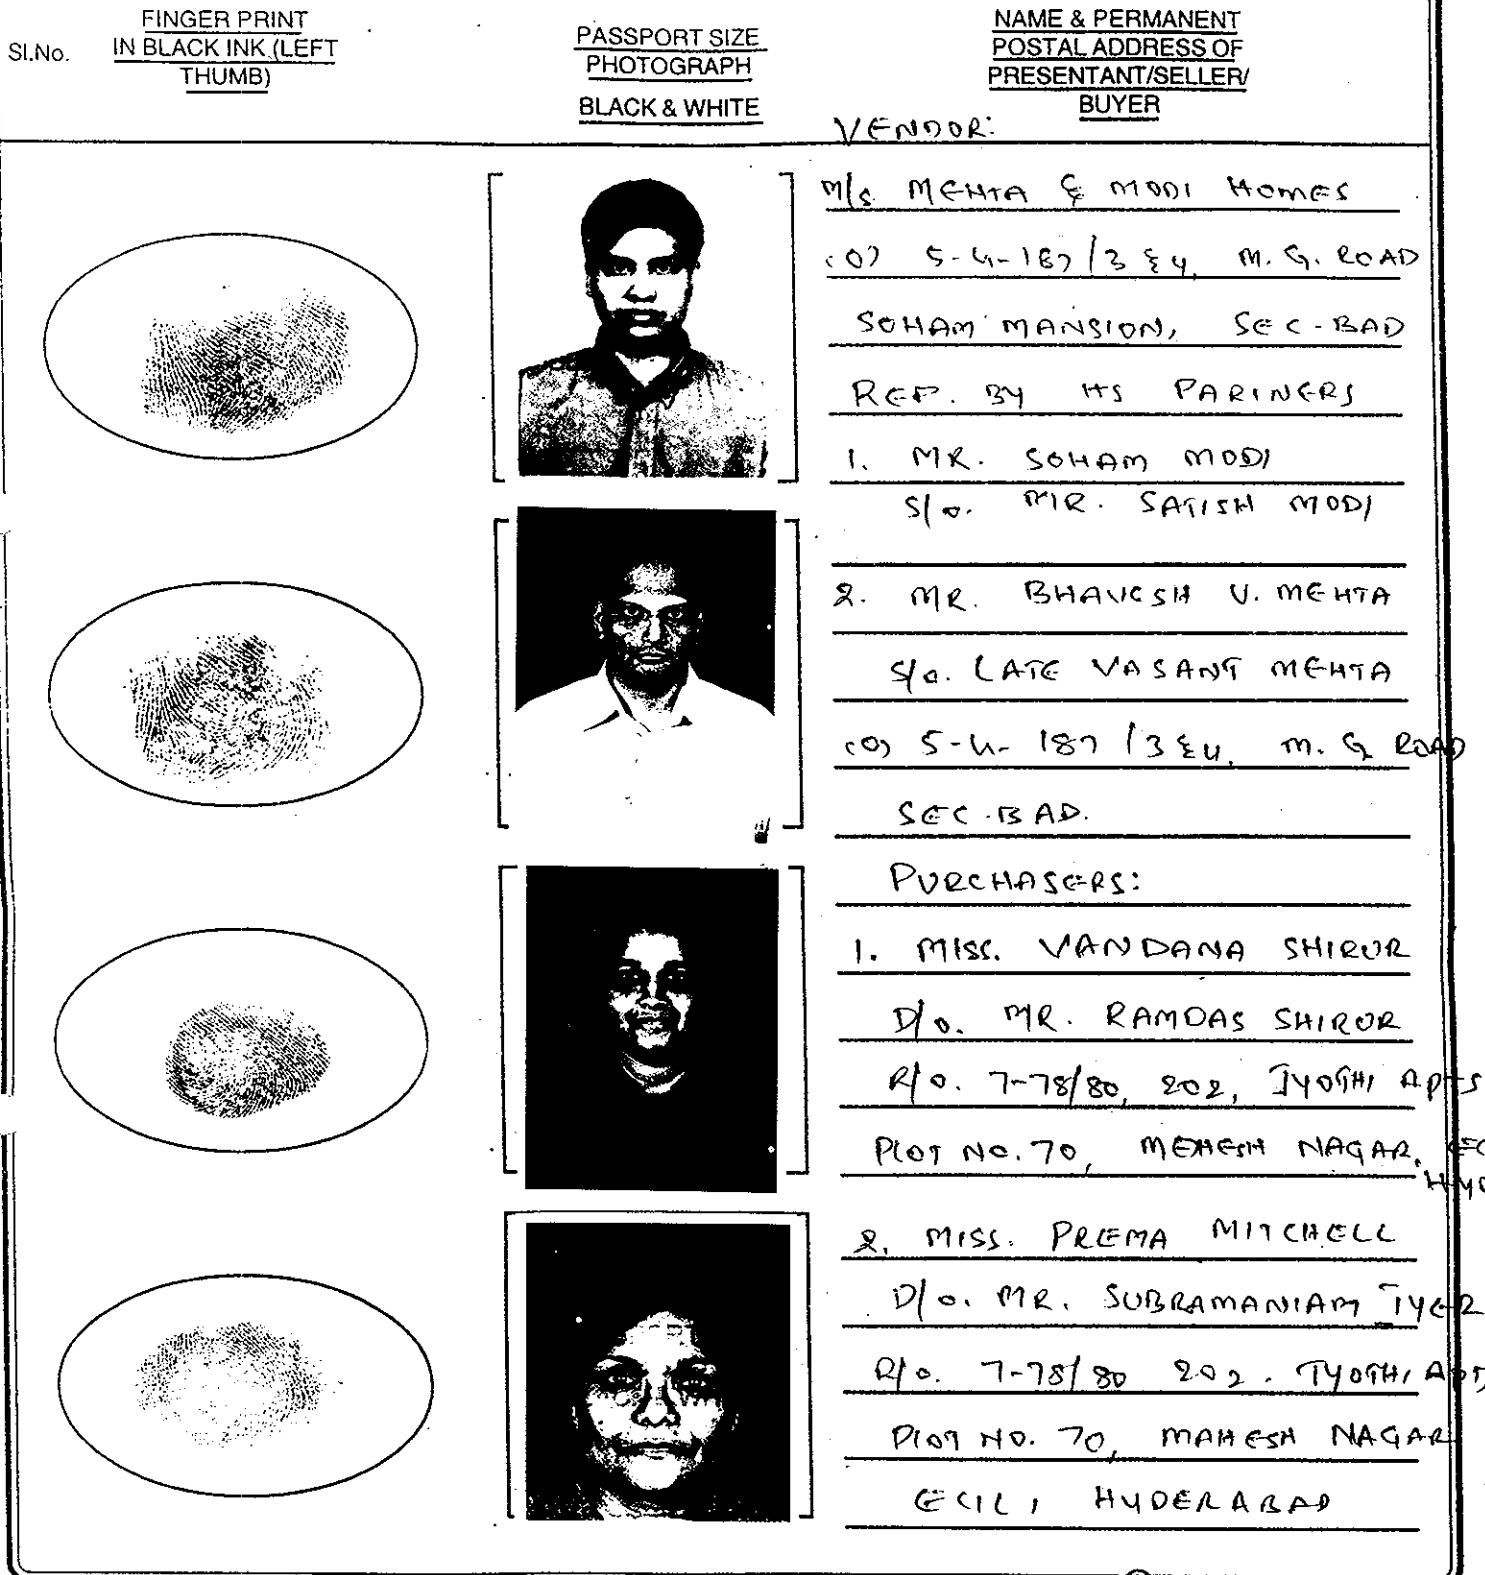 Sl.No.
FINGER PRINT
IN BLACK INK (LEFT
THUMB)
PASSPORT SIZE
PHOTOGRAPH
BLACK & WHITE
NAME & PERMANENT
POSTAL ADDRESS OF
PRESENTANT/SELLER/
BUYER
VENDOR:
M/s. MEHTA & MODI HOMES
(O) 5-4-187/3 & 4, M. G. ROAD
SOHAM MANSION, SEC-BAD
REP. BY ITS PARTNERS
1. MR. SOHAM MODI
S/o. MR. SATISH MODI
2. MR. BHAVESH V. MEHTA
S/o. LATE VASANT MEHTA
(O) 5-4-187/3 & 4, M. G ROAD
SEC-BAD.
PURCHASERS:
1. MISS. VANDANA SHIRUR
D/o. MR. RAMDAS SHIRUR
R/o. 7-78/80, 202, JYOTHI APTS
PLOT NO. 70, MEHESH NAGAR,
2. MISS. PREMA MITCHELL
D/o. MR. SUBRAMANIAM IYER
R/o. 7-78/80 202. JYOTHI APT,
PLOT NO. 70, MAHESH NAGAR
ECIL, HYDERABAD